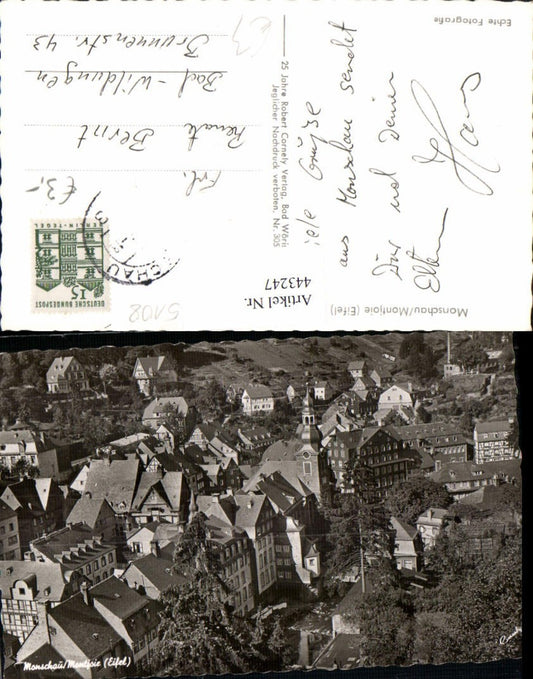 Monschau/Montjoie (Eifel)
Echte Fotografie
Viele Grüße
aus Monschau sendet
Dir und Deinen
Eltern
Hans
25 Jahre Robert Carnely Verlag, Bad Wöris
Jeglicher Nachdruck verboten. Nr. 305
Artikel Nr.
443247
DEUTSCHE BUNDESPOST
15
BERLIN-TEGEL
€3,-
Frl.
Renate Bernt
Bad-Wildungen
Brunnenstr. 43
5108
Monschau/Montjoie (Eifel)